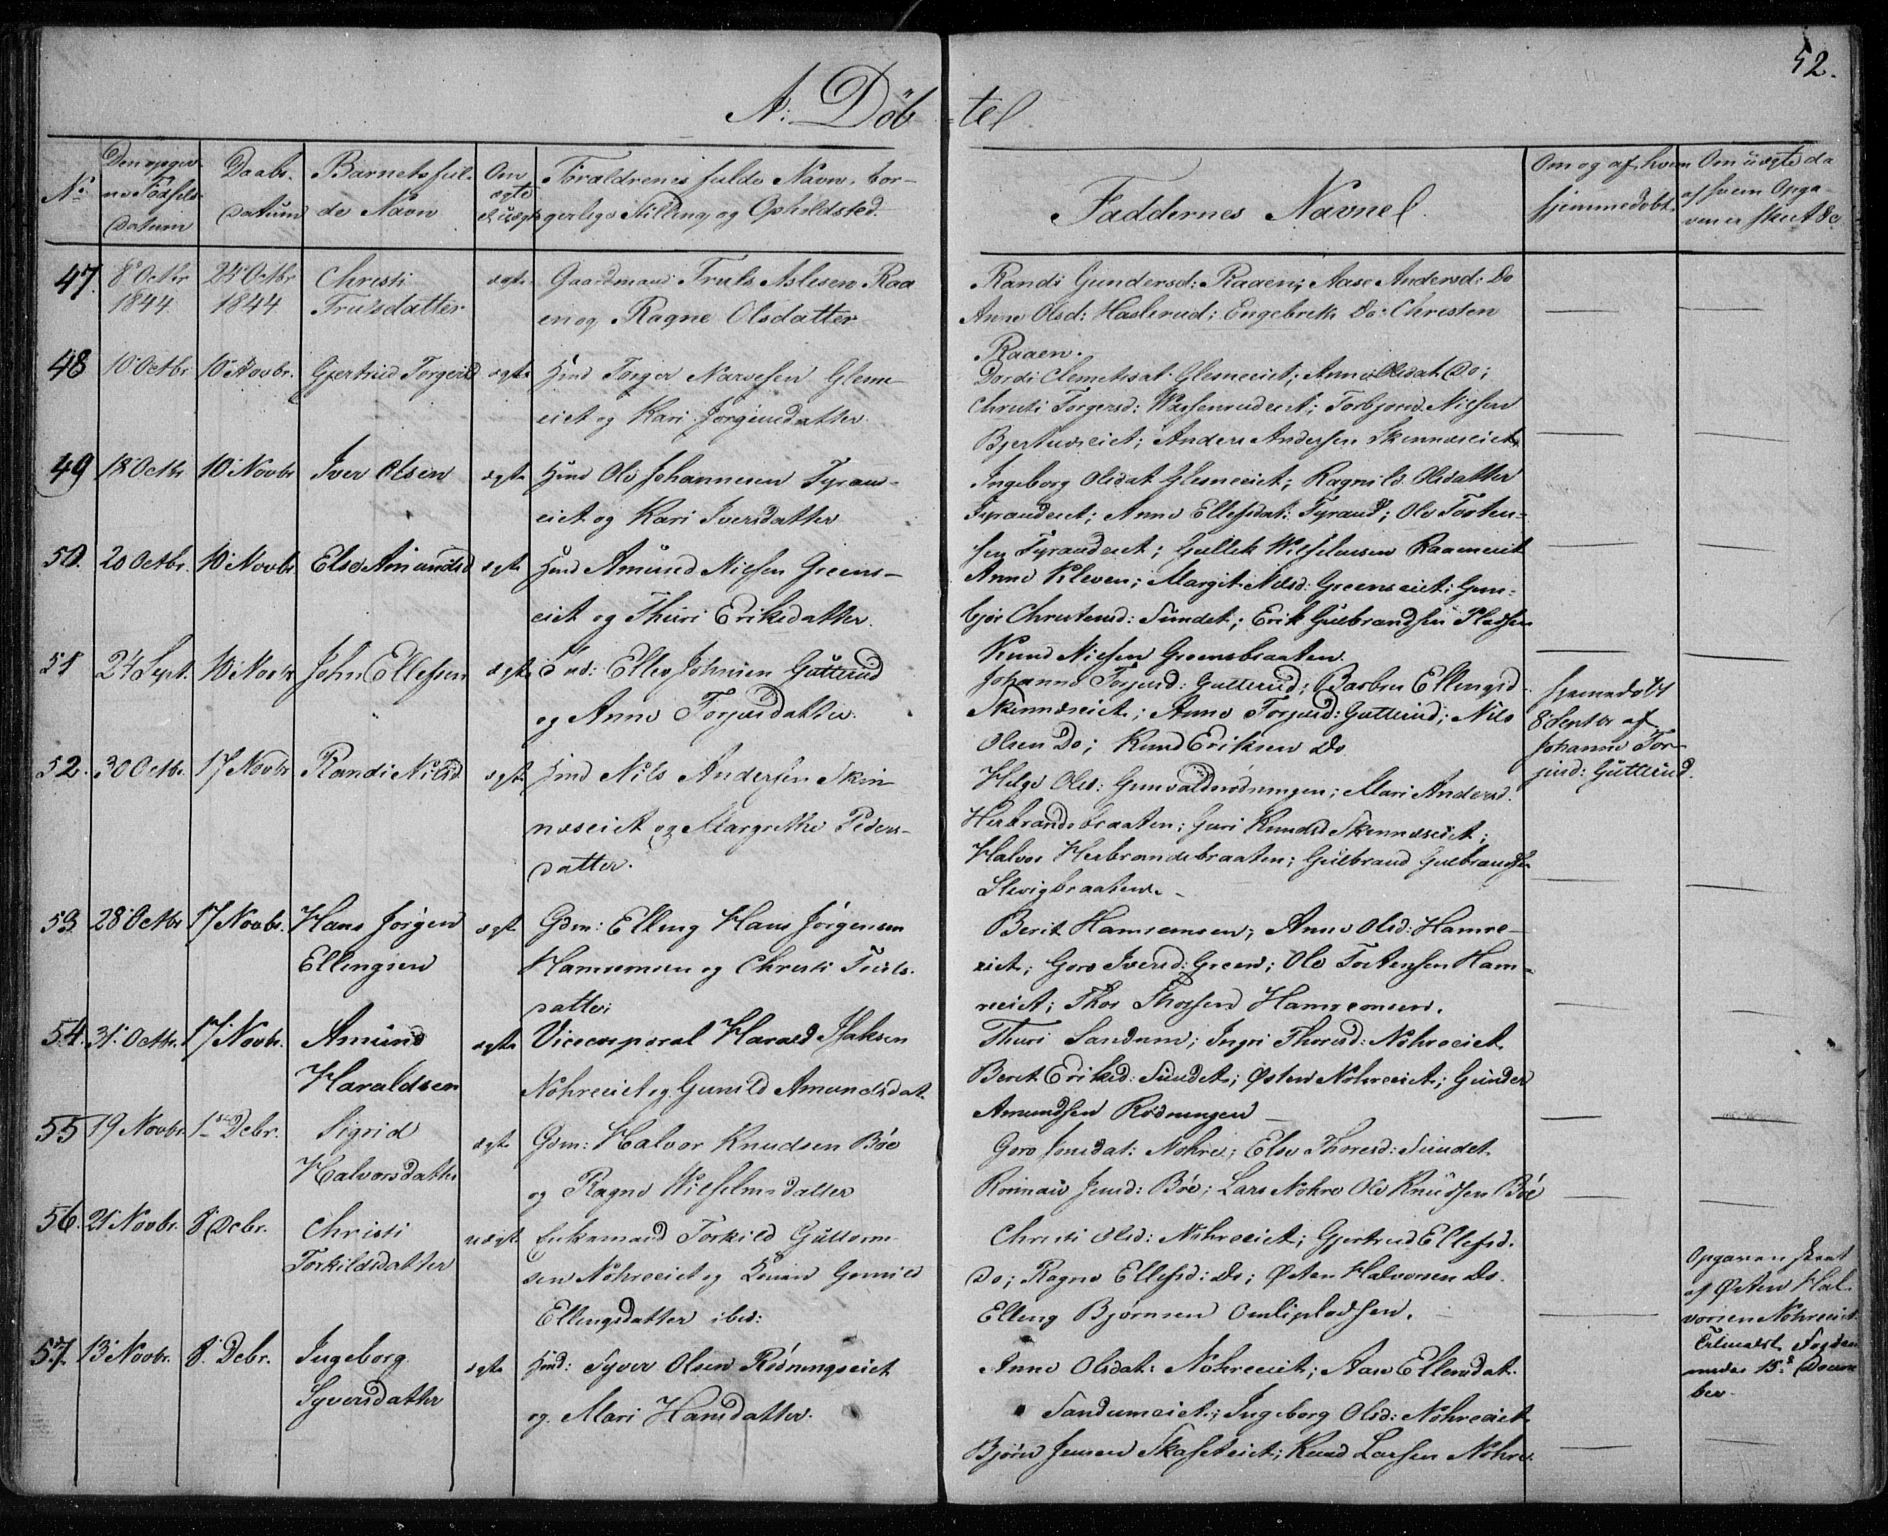 52.
A: Döb=tel
No
Den opgiv-
ne Fødsels
Datum
Daabs-
Datum
Barnets ful-
de Navn
Om
ægte
el. uægte
Forældrenes fulde Navn, bor-
gerlige Stilling og Opholdsted.
Faddernes Navne
Om og af hvem
hjemmedøbt
Om uægte da
af hvem Opga-
ven er skeet &c
47. 8' Octbr 24' Octbr Christi ægte Gaardmand Truls Aslesen Raa
1844 1844 Trulsdatter en og Ragne Olsdatter
Randi Gundersd: Raaen; Aase Andersd: Do
Anne Olsd: Haslerud; Engebrik Do: Christen
Raaen.
48 10' Octbr 10' Novbr. Gjertrud Torgersd ægte Huusd Torger Narvesen Glesne-
eiet og Kari Jørgensdatter
Dordi Clemetsdat: Glesneeiet; Anne Olsdat: Do;
Christi Torgersd: Torbjørn Nielsen
Anders Andersen Skinnæseiet
49 18' Octbr 10' Novbr Iver Olsen ægte Huusd Ole Johannesen Tyran-
eiet og Kari Iversdatter
Ingeborg Olsdat Glesneeiet; Ragnild Olsdatter
Tyraudeiet; Anne Ellefsdat: Tyraud; Ole Torsten-
sen Tyraudeiet; Gullik Wilhelmsen Raaeneiet
50. 20 Octbr. 10' Novbr. Else Amundsd ægte Huusd Amund Nielsen Greens-
eiet og Thuri Eriksdatter.
Anne Kleven; Margit Nilsd: Greenseiet; Gun-
bjør Christensd: Sundet; Erik Gulbrandsen Pladsen
Knud Nielsen Greensbraaten.
51 24' Sept. 10' Novbr John Ellefsen ægte Ellev Johnsen Gutterud
og Anne Torjusdatter.
Johanne Torjusd: Gutterud; Barbro Ellingsd
Skinnæseiet; Anne Torjusd: Gutterud; Nils
Olsen Do; Knud Eriksen Do
hjemmedøbt
8 Septbr af
Johanne Tor-
jusd: Gutterud.
52. 30 Octbr. 17' Novbr Randi Nilsd ægte Huusd Nils Andersen Skin-
næseiet og Margrethe Peders-
datter.
Helge Olsd: Gunvaldrødningen; Mari Andersd.
Herbrandsbraaten; Guri Knudsd Skinnæseiet;
Halvor Herbrandsbraaten; Gulbrand Gulbrandsen
Slevigbraaten.
53. 28' Octbr 17' Novbr. Hans Jørgen ægte Gdm: Elling Hans Jørgensen
Ellingsen Hamremoen og Christi Truls-
datter
Berit Hamremoen; Anne Olsd: Hamre-
eiet; Goro Iversd: Green; Ole Torstensen Ham-
reeiet; Thor Thorsen Hamremoen.
54. 31' Octbr. 17' Novbr. Amund ægte Vicecorporal Harald Isaksen
Haraldsen Nohreeiet og Gunild Amundsdat.
Thuri Sandum; Ingri Thoresd: Nohreeiet
Berit Eriksd: Sundet; Østen Nohreeiet; Gunder
Amundsen Rødningen
55 19 Novbr. 1ste Debr. Sigrid ægte Gdm: Halvor Knudsen Bøe
Halvorsdatter og Ragne Wilhelmsdatter
Goro Jonsdat: Nohre; Else Thoresd: Sundet
Rønnau Jensd: Bøe; Lars Nohre Ole Knudsen Bøe
56. 21' Novbr. 8' Debr. Christi uægte Enkemand Torkild Guttorm-
Torkildsdatter sen Nohreeiet og Gunild
Ellingsdatter ibid:
Christi Olsd: Nohreeiet; Gjertrud Ellefsd.
Do; Ragne Ellefsd: Do; Østen Halvorsen Do.
Elling Bjørnsen Omlipladsen.
Opgaven skeet
af Østen Hal-
vorsen Nohreeiet
Tilmeldt Fogden
under 15de Decem
ber.
57. 13' Novbr. 8' Debr. Ingeborg ægte Huusd: Syver Olsen Rødningseiet
Syversdatter og Mari Hansdatter.
Anne Olsdat: Nohreeiet; Aase Ellensdat.
Sandumeiet; Ingeborg Olsd: Nohreeiet
Bjørn Jensen Skafseteiet; Knud Larsen Nohre